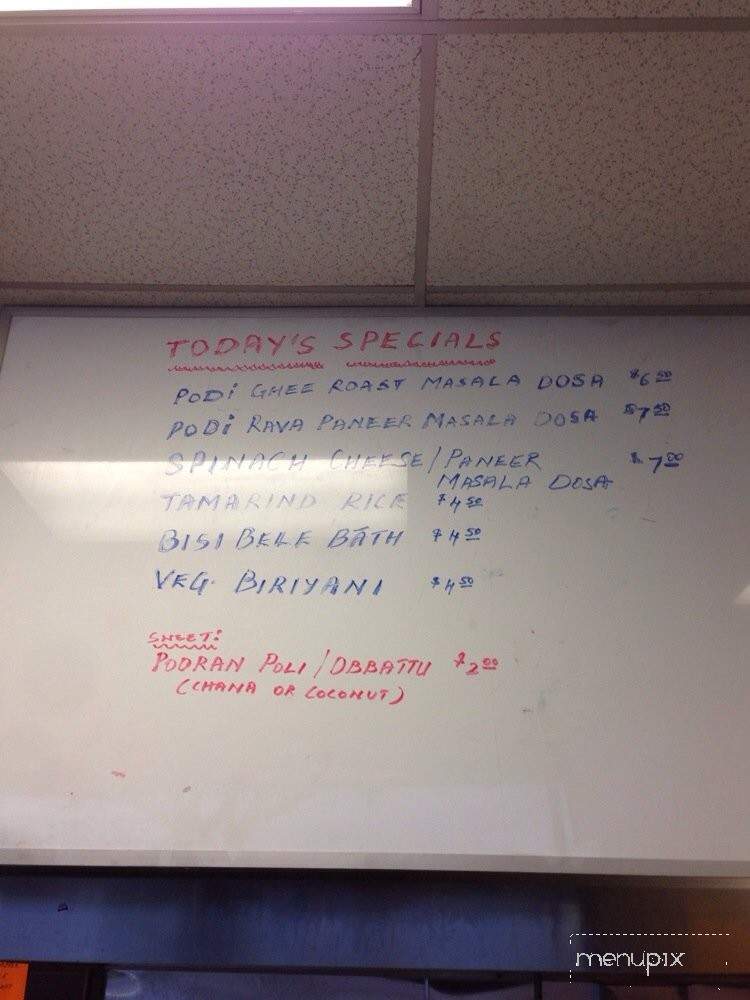 TODAY'S SPECIALS
PODI GHEE ROAST MASALA DOSA $6.50
PODI RAVA PANEER MASALA DOSA $7.50
SPINACH CHEESE/PANEER $7.00
MASALA DOSA
TAMARIND RICE $4.50
BISI BELE BATH $4.50
VEG. BIRIYANI $4.50
SWEET:
POORAN POLI/OBBATTU $2.00
(CHANA OR COCONUT)
menupix